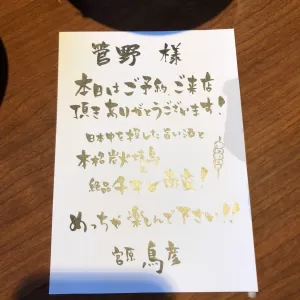 菅野 様
本日はご予約、ご来店
頂きありがとうございます!
日本中を探した旨い酒と
本格炭火焼鳥と
絶品
めっちゃ楽しんで下さい!!
宮原 鳥彦